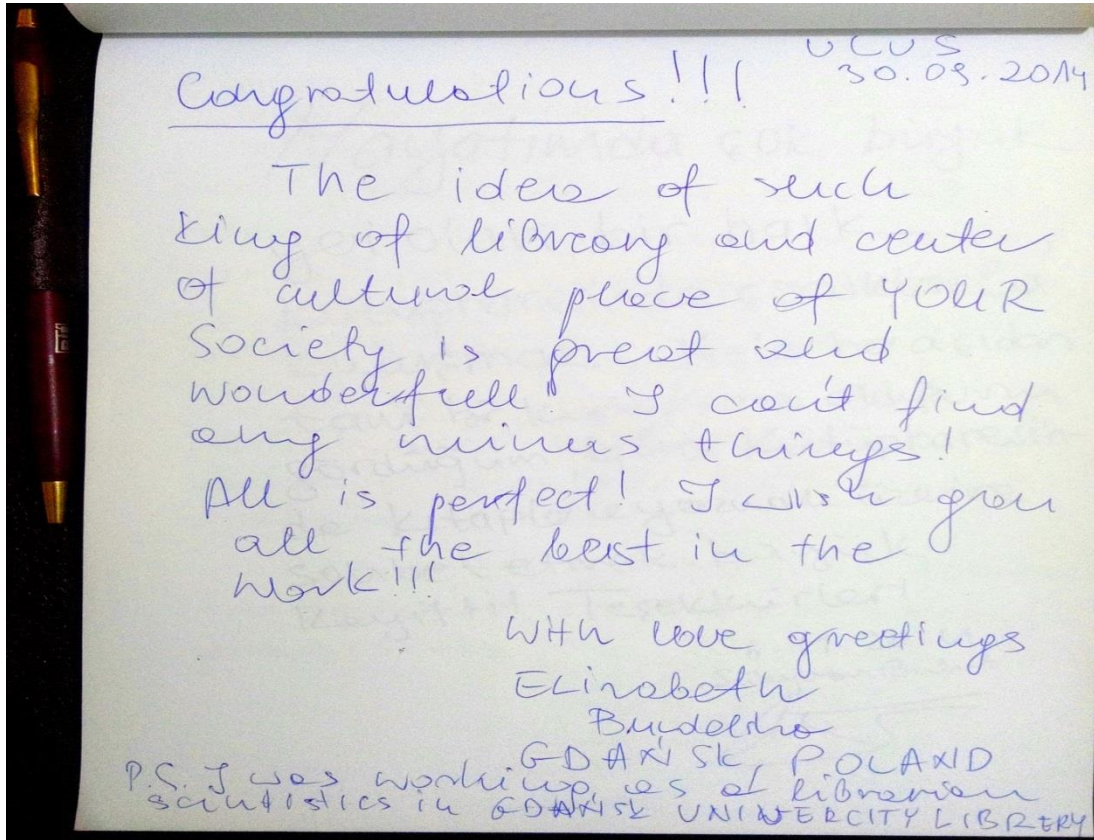 UCUS
30.09.2014
Congratulations!!!
The idea of such
king of library and center
of cultural place of YOUR
Society is great and
wonderfull! I can't find
any minus things!
All is perfect! I wish you
all the best in the
work!!!
With love greetings
Elizabeth
GDAŃSK, POLAND
P.S. I was working, as a librarian
scientistics in GDAŃSK UNINERCITY LIBRERY